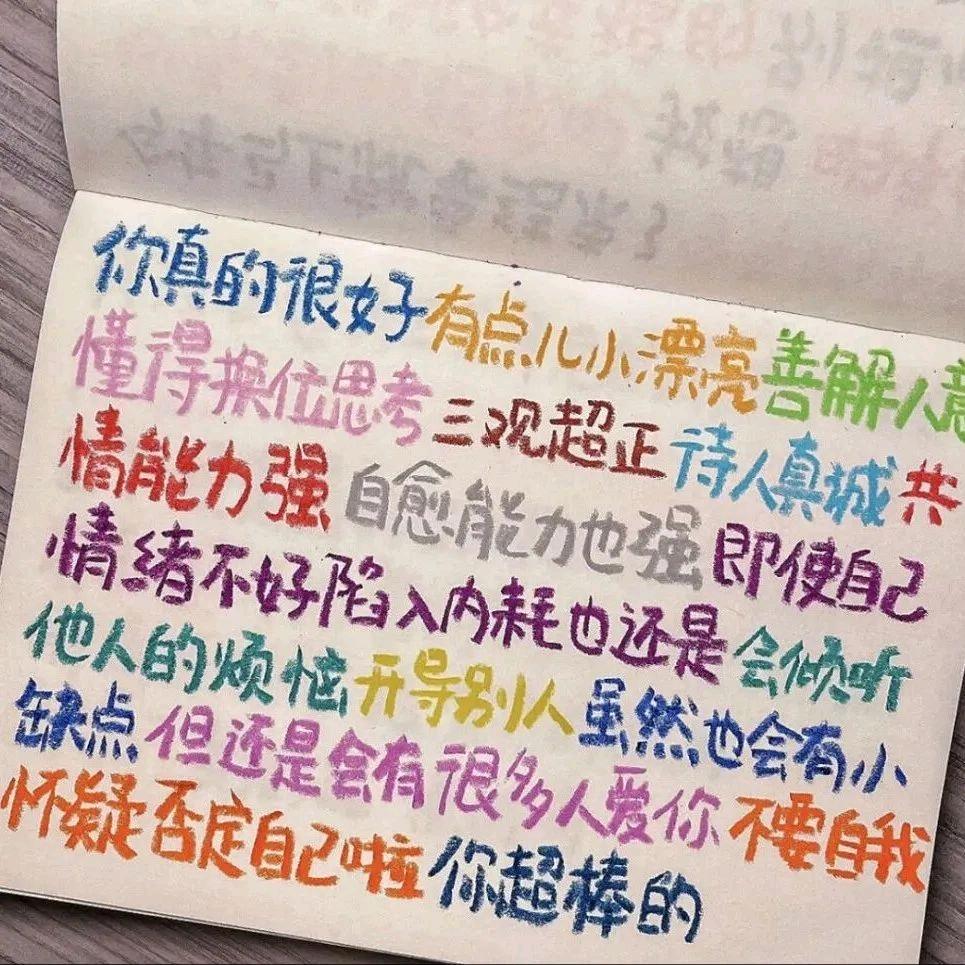 你真的很好有点儿小漂亮善解人意
懂得换位思考三观超正待人真诚共
情能力强自愈能力也强即使自己
情绪不好陷入内耗也还是会倾听
他人的烦恼开导别人虽然也会有小
缺点但还是会有很多人爱你不要自我
怀疑否定自己啦你超棒的